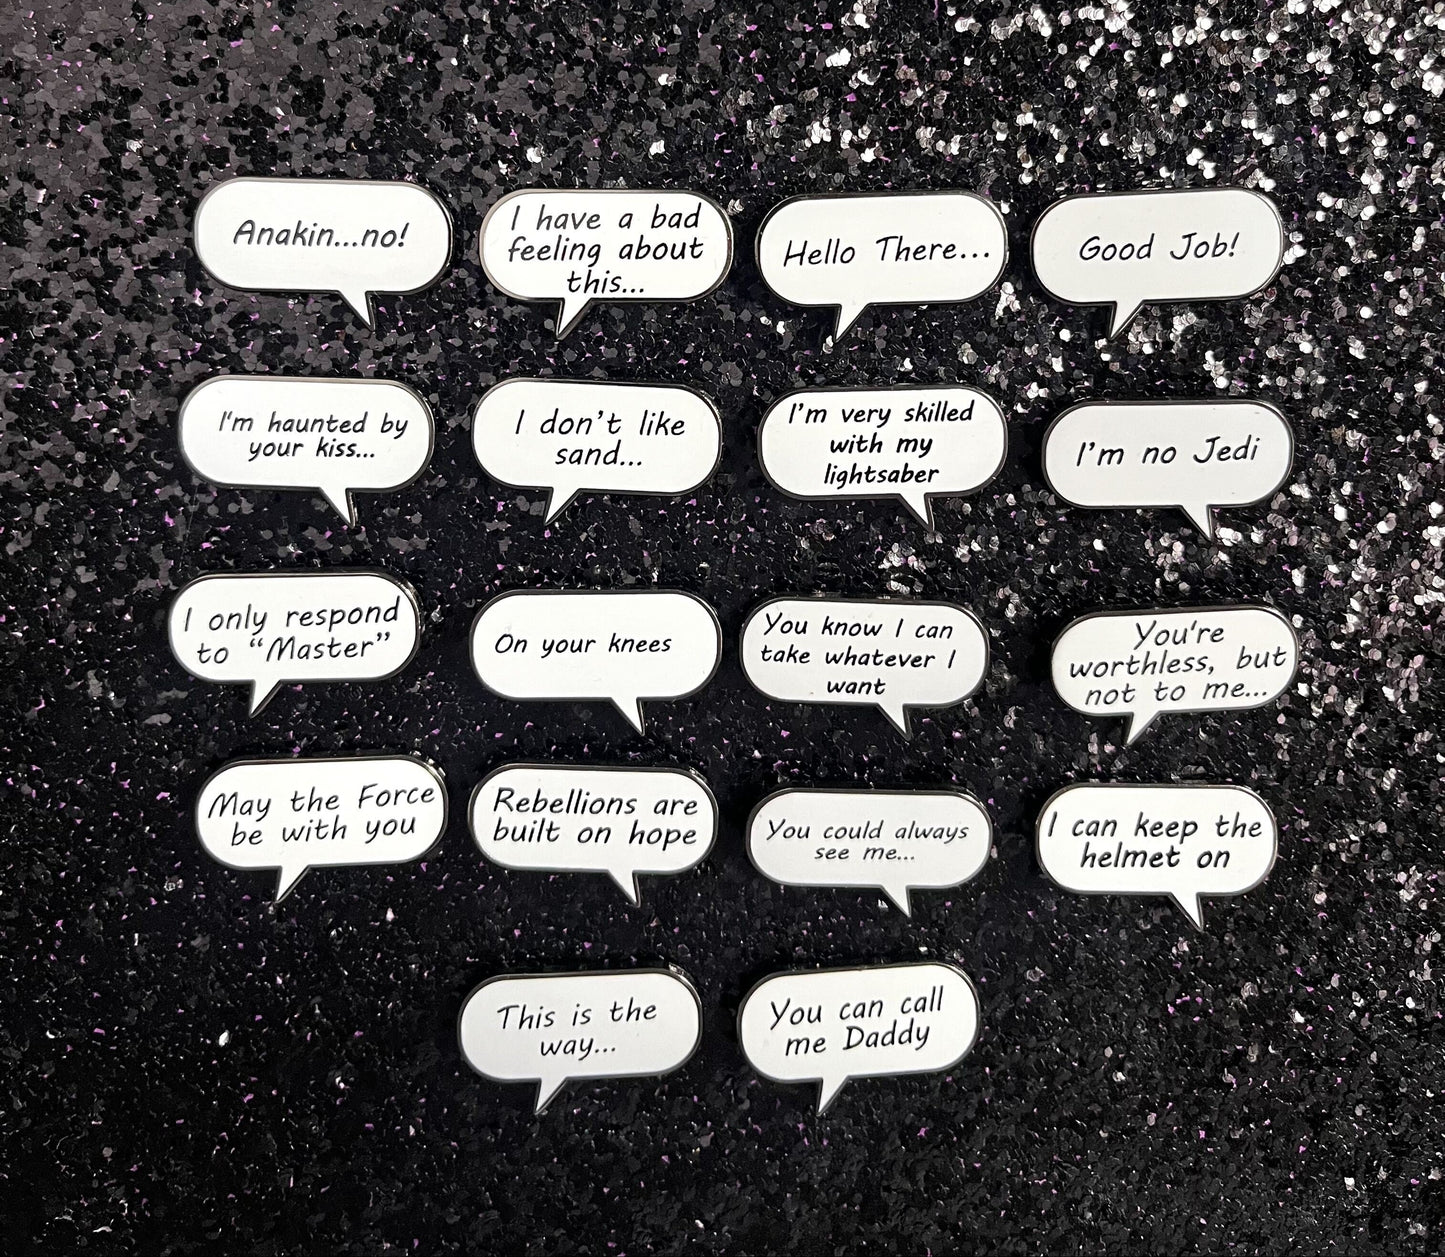 Anakin...no!
I have a bad
feeling about
this...
Hello There...
Good Job!
I'm haunted by
your kiss...
I don't like
sand...
I'm very skilled
with my
lightsaber
I'm no Jedi
I only respond
to "Master"
On your knees
You know I can
take whatever I
want
You're
worthless, but
not to me...
May the Force
be with you
Rebellions are
built on hope
You could always
see me...
I can keep the
helmet on
This is the
way...
You can call
me Daddy